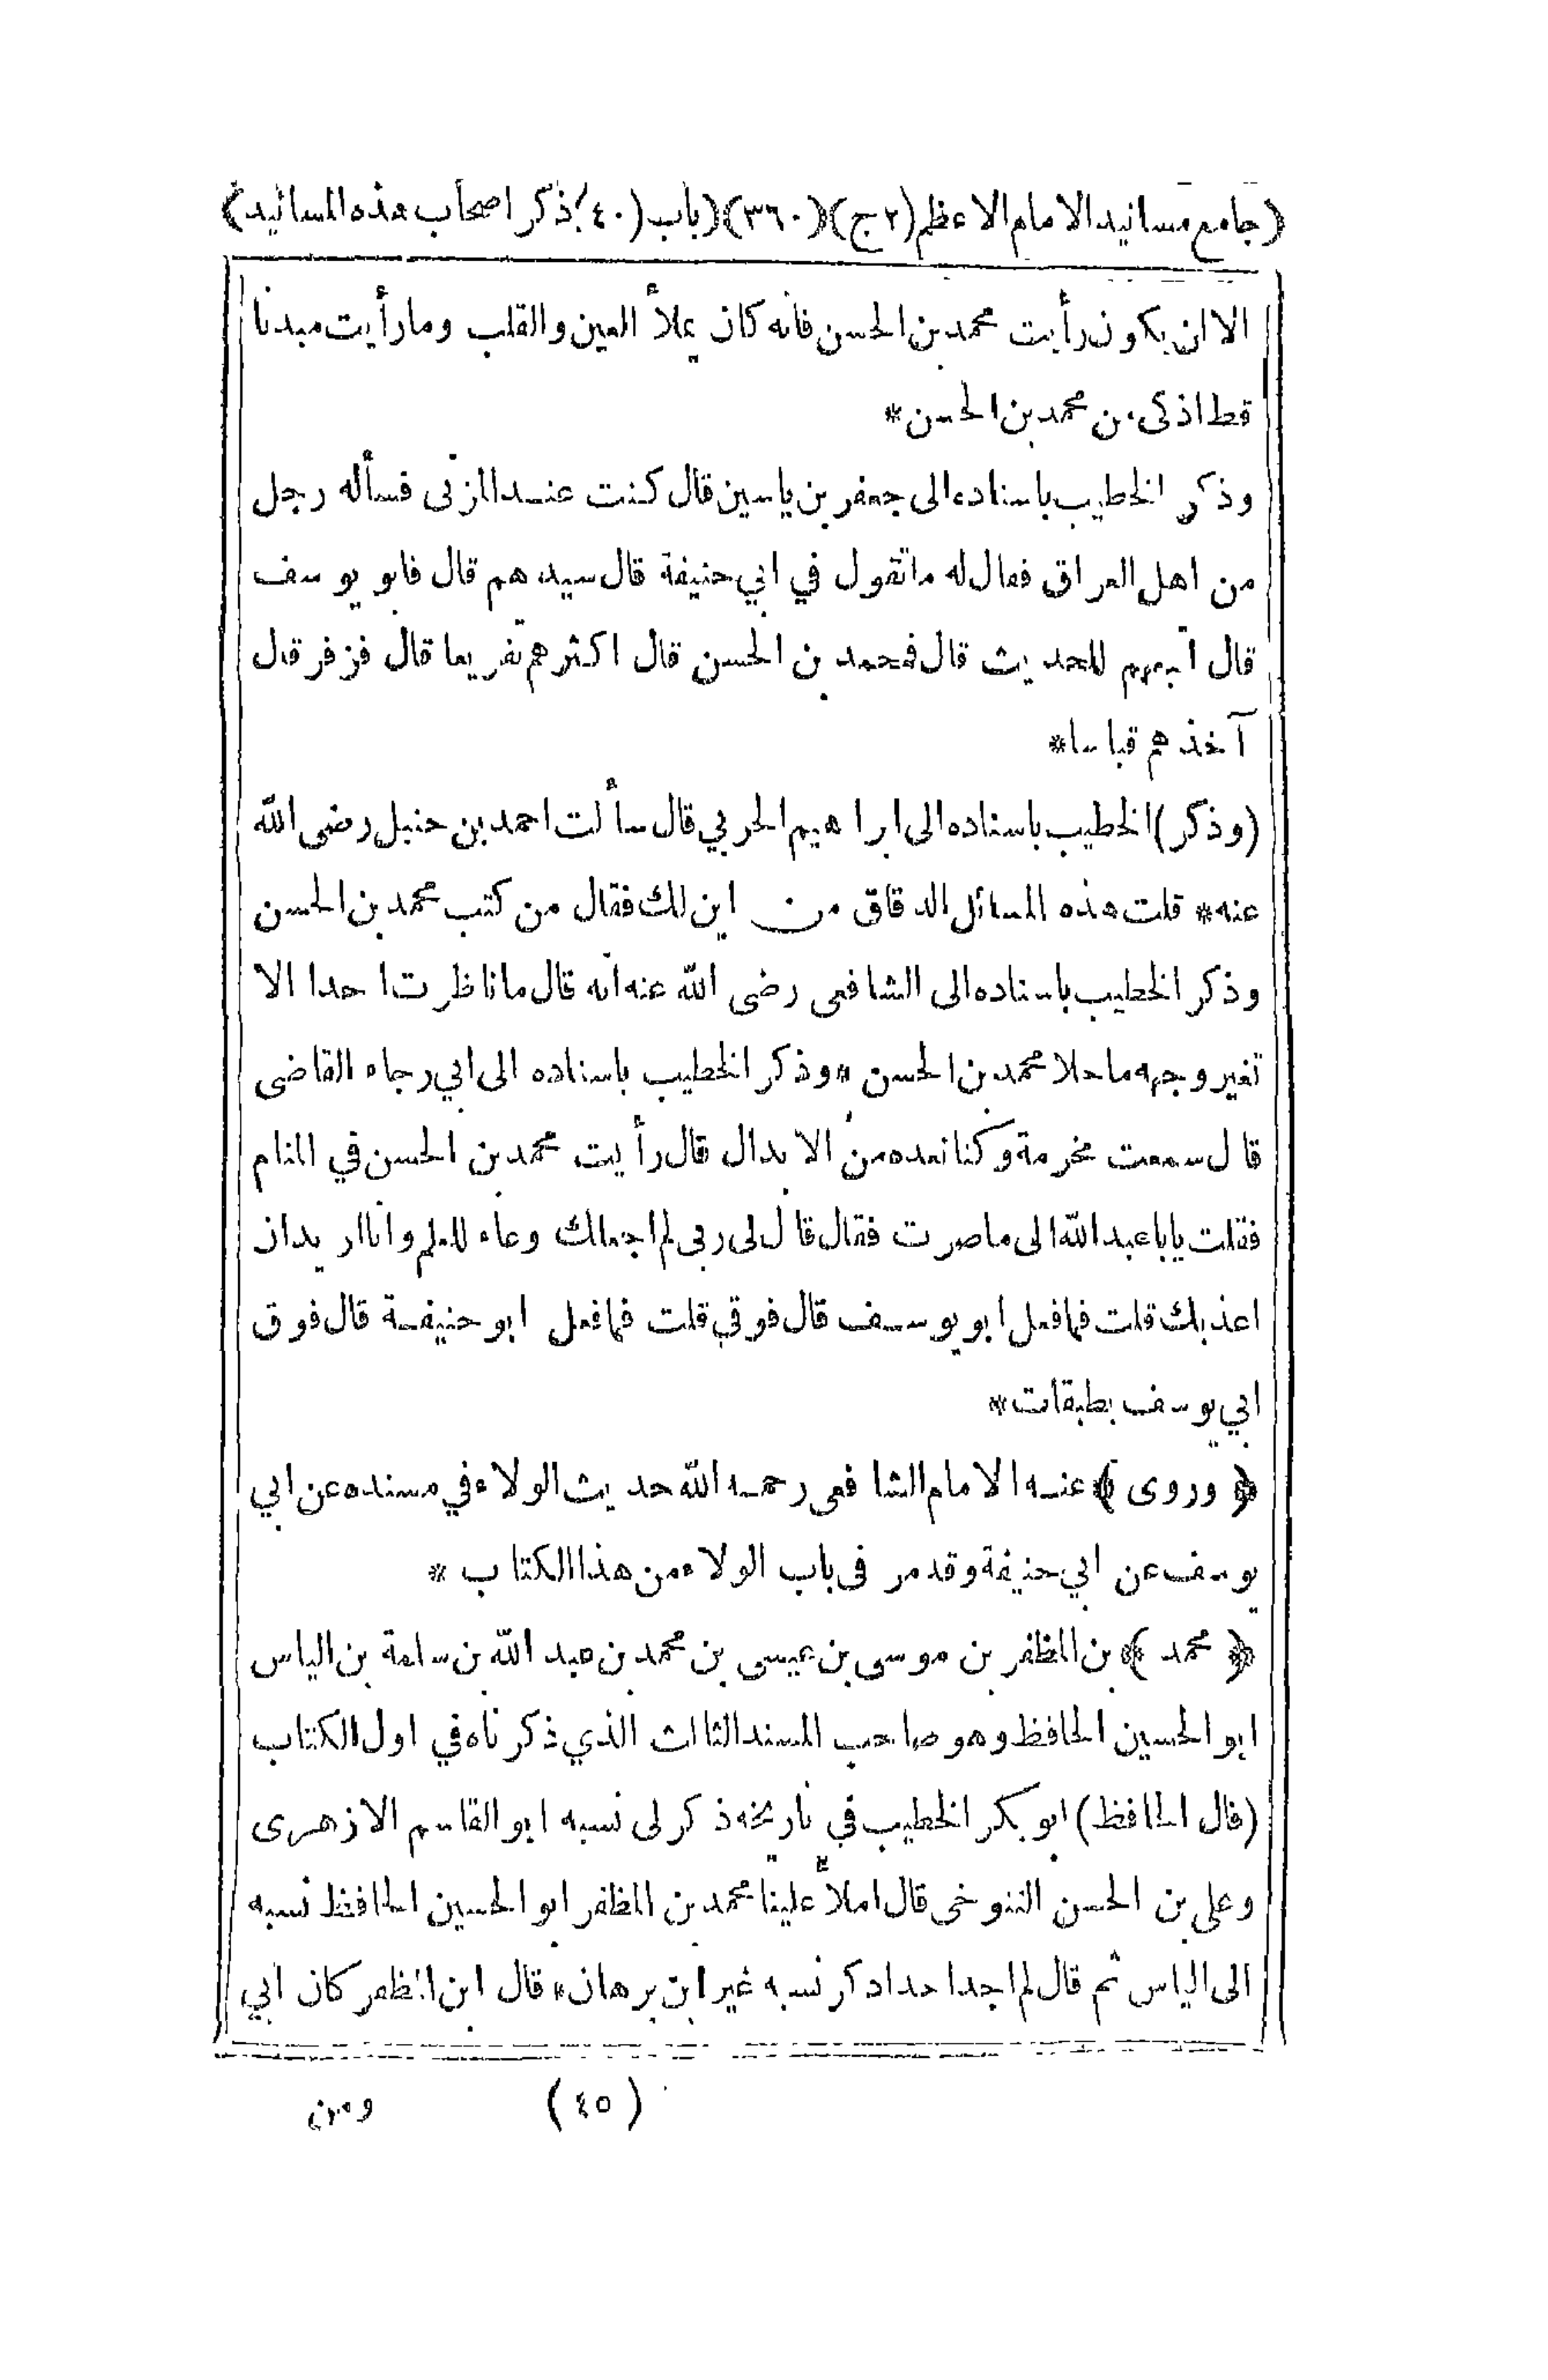 (جامع مسانيد الامام الاعظم (ج٢) (٣٦٠) (باب (٤٠) ذكر اصحاب هذه المسانيد)
الا ان يكون رأيت محمد بن الحسن فانه كان يملأ العين والقلب وما رأيت مبدنا
قط اذكى من محمد بن الحسن *
وذكر الخطيب باسناده الى جعفر بن ياسين قال كنت عند المزنى فسأله رجل
من اهل العراق فقال له ما تقول في ابي حنيفة قال سيدهم قال فابو يوسف
قال اتبعهم للحديث قال فمحمد بن الحسن قال اكثرهم تفريعا قال فزفر قال
آخذهم قياسا *
(وذكر) الخطيب باسناده الى ابراهيم الحربي قال سألت احمد بن حنبل رضى الله
عنه * قلت هذه المسائل الدقاق من اين لك فقال من كتب محمد بن الحسن
وذكر الخطيب باسناده الى الشافعى رضى الله عنه انه قال ما ناظرت احدا الا
تغير وجهه ما خلا محمد بن الحسن * وذكر الخطيب باسناده الى ابي رجاء القاضى
قال سمعت مخرمة وكنا نعده من الابدال قال رأيت محمد بن الحسن في المنام
فقلت يا با عبد الله الى ما صرت فقال قال لى ربى لم اجعلك وعاء للعلم وانا اريد ان
اعذبك قلت فما فعل ابو يوسف قال فوقي قلت فما فعل ابو حنيفة قال فوق
ابي يوسف بطبقات *
﴿ وروى ﴾ عنه الامام الشافعى رحمه الله حديث الولاء في مسنده عن ابي
يوسف عن ابي حنيفة وقد مر فى باب الولاء من هذا الكتاب *
﴿ محمد ﴾ بن المظفر بن موسى بن عيسى بن محمد بن عبد الله بن سلمة بن الياس
ابو الحسين الحافظ وهو صاحب المسند الثالث الذي ذكرناه في اول الكتاب
(قال الحافظ) ابو بكر الخطيب في تاريخه ذكر لى نسبه ابو القاسم الازهرى
وعلى بن الحسن التنوخى قال املأ علينا محمد بن المظفر ابو الحسين الحافظ نسبه
الى الياس ثم قال لم اجد احدا ذكر نسبه غير ابن برهان * قال ابن المظفر كان ابي
(٤٥) ومن